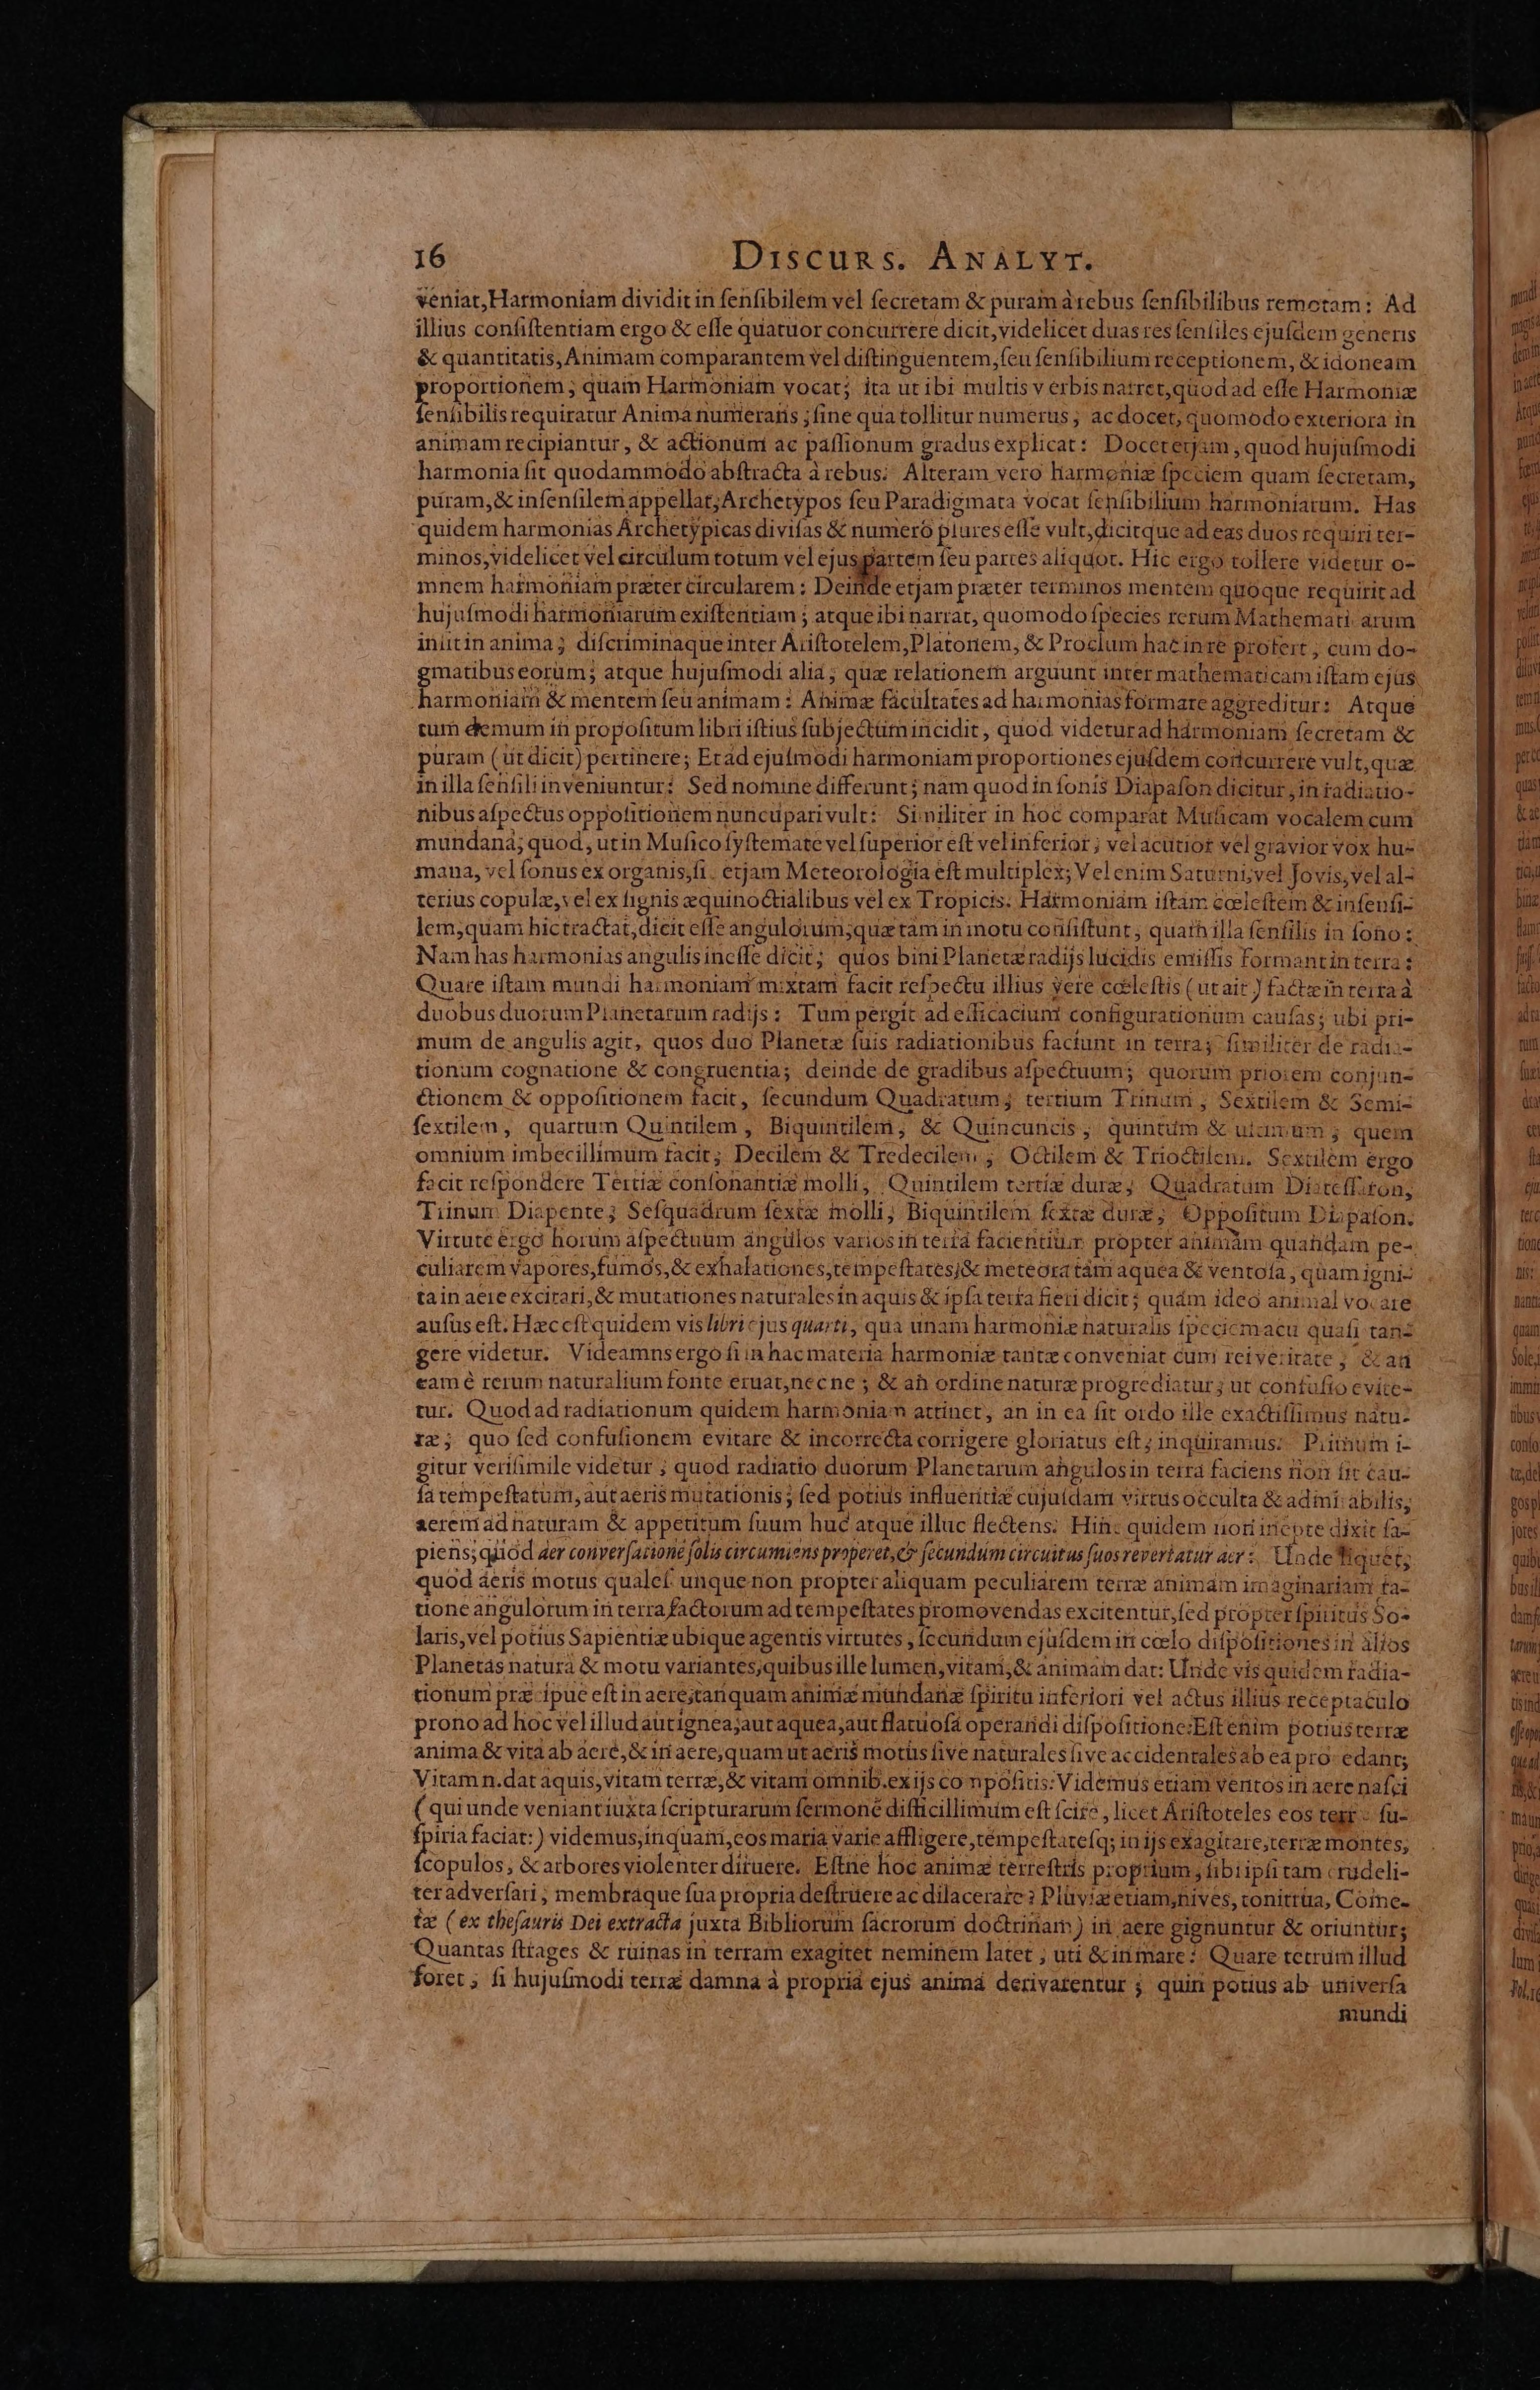 16 Discurs. Analyt.
veniat, Harmoniam dividit in ſenſibilem vel ſecretam & puram à rebus ſenſibilibus remotam: Ad
illius conſiſtentiam ergo & eſſe quatuor concurrere dicit, videlicet duas res ſenſiles ejuſdem generis
& quantitatis, Animam comparantem vel diſtinguentem, ſeu ſenſibilium receptionem, & idoneam
proportionem; quam Harmoniam vocat; ita ut ibi multis verbis narret, quod ad eſſe Harmoniæ
ſenſibilis requiratur Anima numerans; ſine qua tollitur numerus; ac docet, quomodo exteriora in
animam recipiantur, & actionum ac paſſionum gradus explicat: Docet etjam, quod hujuſmodi
harmonia ſit quodammodo abſtracta à rebus: Alteram vero harmoniæ ſpeciem quam ſecretam,
puram, & inſenſilem appellat, Archetypos ſeu Paradigmata vocat ſenſibilium harmoniarum. Has
quidem harmonias Archetypicas diviſas & numero plures eſſe vult, dicitque ad eas duos requiri ter-
minos, videlicet vel circulum totum vel ejus partem ſeu partes aliquot. Hic ergo tollere videtur o-
mnem harmoniam præter circularem: Deinde etjam præter terminos mentem quoque requirit ad
hujuſmodi harmoniarum exiſtentiam; atque ibi narrat, quomodo ſpecies rerum Mathematicarum
inſint in anima; diſcriminaque inter Ariſtotelem, Platonem, & Proclum hac in re profert, cum do-
gmatibus eorum; atque hujuſmodi alia, quæ relationem arguunt inter mathematicam iſtam ejus
harmoniam & mentem ſeu animam: Animæ facultates ad harmonias formare aggreditur: Atque
tum demum in propoſitum libri iſtius ſubjectum incidit, quod videtur ad harmoniam ſecretam &
puram (ut dicit) pertinere; Et ad ejuſmodi harmoniam proportiones ejuſdem concurrere vult, quæ
in illa ſenſili inveniuntur: Sed nomine differunt; nam quod in ſonis Diapaſon dicitur, in radiatio-
nibus aſpectus oppoſitionem nuncupari vult: Similiter in hoc comparat Muſicam vocalem cum
mundana; quod, ut in Muſico ſyſtemate vel ſuperior eſt vel inferior; vel acutior vel gravior vox hu-
mana, vel ſonus ex organis, ſic etjam Meteorologia eſt multiplex; Vel enim Saturni, vel Jovis, vel al-
terius copulæ, vel ex ſignis æquinoctialibus vel ex Tropicis. Harmoniam iſtam cœleſtem & inſenſi-
lem, quam hic tractat, dicit eſſe angulorum, quæ tam in motu conſiſtunt, quam illa ſenſilis in ſono:
Nam has harmonias angulis ineſſe dicit; quos bini Planetæ radijs lucidis emiſſis formant in terra:
Quare iſtam mundi harmoniam mixtam facit reſpectu illius vere cœleſtis (ut ait) factæ in terra à
duobus duorum Planetarum radijs: Tum pergit ad efficacium configurationum cauſas; ubi pri-
mum de angulis agit, quos duo Planetæ ſuis radiationibus faciunt in terra; ſimiliter de radia-
tionum cognatione & congruentia; deinde de gradibus aſpectuum; quorum priorem conjun-
ctionem & oppoſitionem facit, ſecundum Quadratum; tertium Trinum, Sextilem & Semi-
ſextilem, quartum Quintilem, Biquintilem, & Quincuncis, quintum & ultimum; quem
omnium imbecillimum facit; Decilem & Tredecilem; Octilem & Trioctilem. Sextilem ergo
facit reſpondere Tertiæ conſonantiæ molli, Quintilem tertiæ duræ; Quadratum Diateſſaron;
Trinum Diapente; Seſquadrum ſextæ molli; Biquintilem ſextæ duræ; Oppoſitum Diapaſon.
Virtute ergo horum aſpectuum angulos varios in terra facientium propter animam quandam pe-
culiarem vapores, fumos, & exhalationes, tempeſtates, & meteora tam aquea & ventoſa, quam igni-
ta in aere excitari, & mutationes naturales in aquis & ipſa terra fieri dicit; quam ideo animal vocare
auſus eſt. Hæc eſt quidem vis libri ejus quarti, qua unam harmoniæ naturalis ſpeciem acu quaſi tan-
gere videtur. Videamns ergo ſi in hac materia harmoniæ tantæ conveniat cum rei veritate; & an
eam é rerum naturalium fonte eruat, necne; & an ordine naturæ progrediatur; ut confuſio evite-
tur. Quod ad radiationum quidem harmoniam attinet, an in ea ſit ordo ille exactiſſimus natu-
ræ; quo ſed confuſionem evitare & incorrecta corrigere gloriatus eſt; inquiramus: Primum i-
gitur veriſimile videtur; quod radiatio duorum Planetarum angulos in terra faciens non ſit cau-
ſa tempeſtatum, aut aeris mutationis; ſed potius influentiæ cujuſdam virtus occulta & admirabilis,
aerem ad naturam & appetitum ſuum huc atque illuc flectens: Hinc quidem non inepte dixit ſa-
piens; quod aer converſatione ſolis circumiens properet, & ſecundum circuitus ſuos revertatur aer: Unde liquet;
quod aeris motus qualeſcunque non propter aliquam peculiarem terræ animam imaginariam ra-
tione angulorum in terra factorum ad tempeſtates promovendas excitentur, ſed propter ſpiritus So-
laris, vel potius Sapientiæ ubique agentis virtutes, ſecundum ejuſdem in cœlo diſpoſitiones in alios
Planetas natura & motu variantes, quibus ille lumen, vitam, & animam dat: Unde vis quidem radia-
tionum præcipue eſt in aere, tanquam animæ mundanæ ſpiritu inferiori vel actus illius receptaculo
prono ad hoc vel illud aut ignea, aut aquea, aut flatuoſa operandi diſpoſitione: Eſt enim potius terræ
anima & vita ab aere, & in aere, quam ut aeris motus ſive naturales ſive accidentales ab ea procedant;
Vitam n. dat aquis, vitam terræ, & vitam omnib. ex ijs compoſitis: Videmus etiam ventos in aere naſci
(qui unde veniant iuxta ſcripturarum ſermonẽ difficillimum eſt ſcire, licet Ariſtoteles eos terræ ſu-
ſpiria faciat:) videmus, inquam, eos maria varie affligere, tempeſtateſq; in ijs exagitare, terræ montes,
ſcopulos, & arbores violenter diruere. Eſtne hoc animæ terreſtris proprium, ſibi ipſi tam crudeli-
ter adverſari; membraque ſua propria deſtruere ac dilacerare? Pluviæ etiam, nives, tonitrua, Come-
tæ (ex theſauris Dei extracta juxta Bibliorum ſacrorum doctrinam) in aere gignuntur & oriuntur;
Quantas ſtrages & ruinas in terram exagitet neminem latet; uti & in mare: Quare tetrum illud
foret; ſi hujuſmodi terræ damna à propria ejus anima derivarentur; quin potius ab univerſa
mundi